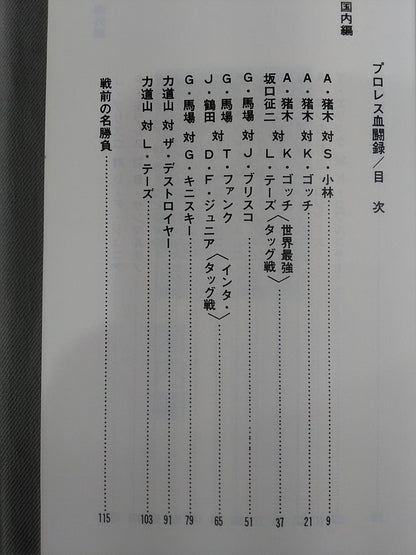 プロレス血闘録／目次
国内編
A・猪木 対 S・小林……9
A・猪木 対 K・ゴッチ……21
A・猪木 対 K・ゴッチ〈世界最強
坂口征二 L・テーズ タッグ戦〉……37
G・馬場 対 J・ブリスコ……51
G・馬場 対 T・ファンク 〈インタ・
J・鶴田 D・F・ジュニア タッグ戦〉……65
G・馬場 対 G・キニスキー……79
力道山 対 ザ・デストロイヤー……91
力道山 対 L・テーズ……103
戦前の名勝負……115